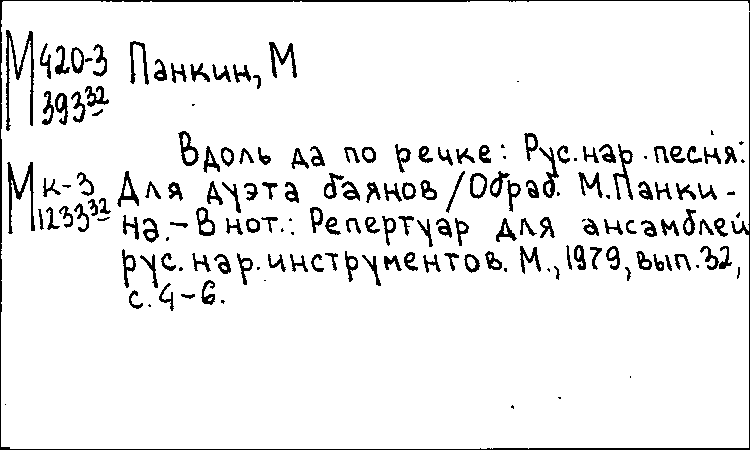 М 420-3 Панкин, М
393 32
Вдоль да по речке: Рус. нар. песня:
М к-3 Для дуэта баянов / Обраб. М. Панки-
1233 32 на. – В нот.: Репертуар для ансамблей
рус. нар. инструментов. М., 1979, вып. 32,
с. 4-6.